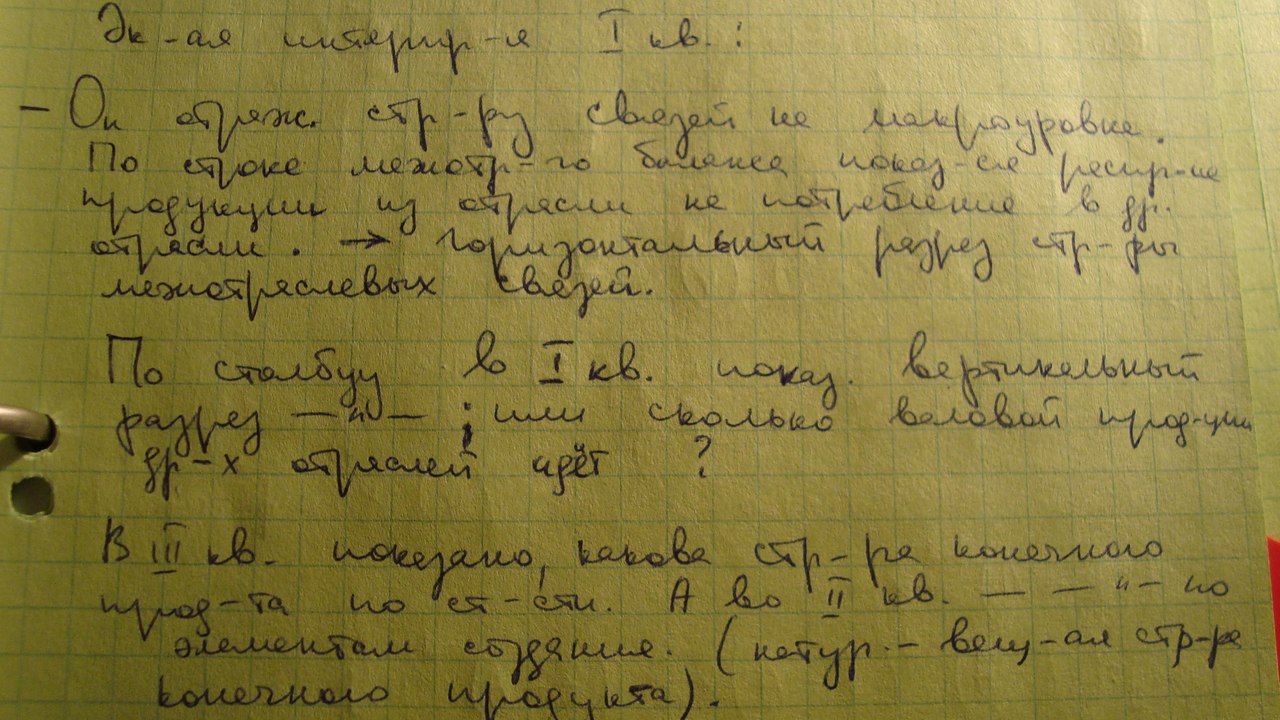 Эк-ая интерпр-я I кв.:
– Он отраж. стр-ру связей на макроуровне.
По строке межотр-го баланса показ-ся распр-ие
продукции из отрасли на потребление в др.
отрасли. → Горизонтальный разрез стр-ры
межотраслевых связей.
По столбцу в I кв. показ. вертикальный
разрез —"—; или сколько валовой прод-ции
др-х отраслей идёт ?
В III кв. показано, какова стр-ра конечного
прод-та по ст-сти. А во II кв. — — "– по
элементам создания. (натур.-вещ-ая стр-ра
конечного продукта).